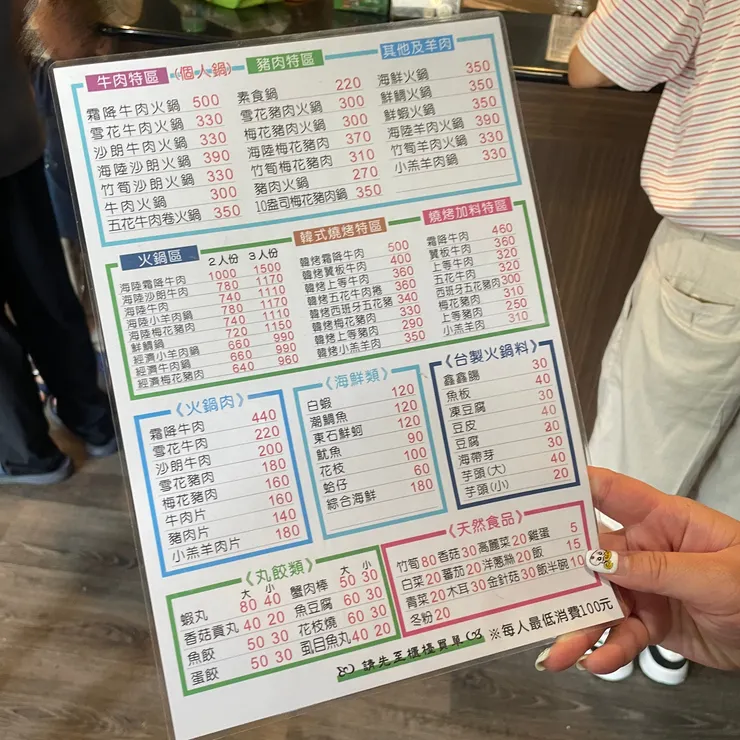 牛肉特區 (個人鍋)
霜降牛肉火鍋 500
雪花牛肉火鍋 330
沙朗牛肉火鍋 330
海陸沙朗火鍋 390
竹筍沙朗火鍋 330
牛肉火鍋 300
五花牛肉卷火鍋 350
豬肉特區
素食鍋 220
雪花豬肉火鍋 300
梅花豬肉火鍋 300
海陸梅花豬肉 370
竹筍梅花豬肉 310
豬肉火鍋 270
10盎司梅花豬肉鍋 350
其他及羊肉
海鮮火鍋 350
鮮鯛火鍋 350
鮮蝦火鍋 350
海陸羊肉火鍋 390
竹筍羊肉火鍋 330
小羔羊肉鍋 330
火鍋區 2人份 3人份
海陸霜降牛肉 1000 1500
海陸沙朗牛肉 780 1170
海陸牛肉 740 1110
海陸小羔羊肉鍋 780 1170
海陸梅花豬肉 740 1110
鮮鯛鍋 720 1150
經濟小羊肉鍋 660 990
經濟牛肉鍋 660 990
經濟梅花豬肉 640 960
韓式燒烤特區
韓烤霜降牛肉 500
韓烤翼板牛肉 400
韓烤上等牛肉 360
韓烤五花牛肉捲 360
韓烤西班牙五花豬 340
韓烤梅花豬肉 330
韓烤上等豬肉 290
韓烤小羔羊肉 350
燒烤加料特區
霜降牛肉 460
翼板牛肉 360
上等牛肉 320
五花牛肉 320
西班牙五花豬肉 300
梅花豬肉 310
上等豬肉 250
小羔羊肉 310
《火鍋肉》
霜降牛肉 440
雪花牛肉 220
沙朗牛肉 200
雪花豬肉 180
梅花豬肉 160
牛肉片 160
豬肉片 140
小羔羊肉片 180
《海鮮類》
白蝦 120
潮鯛魚 120
東石鮮蚵 120
魷魚 90
花枝 100
蛤仔 60
綜合海鮮 180
《台製火鍋料》
鑫鑫腸 30
魚板 40
凍豆腐 30
豆皮 40
豆腐 20
海帶芽 30
芋頭(大) 40
芋頭(小) 20
《丸餃類》
大 小
蝦丸 80 40
香菇貢丸 40 20
魚餃 50 30
蛋餃 50 30
大 小
蟹肉棒 50 30
魚豆腐 60 30
花枝燒 60 30
虱目魚丸 40 20
《天然食品》
竹筍80 香菇30 高麗菜20 雞蛋 5
白菜20 蕃茄20 洋蔥絲20 飯 15
青菜20 木耳30 金針菇30 飯半碗10
冬粉20
請先至櫃檯買單 ※每人最低消費100元